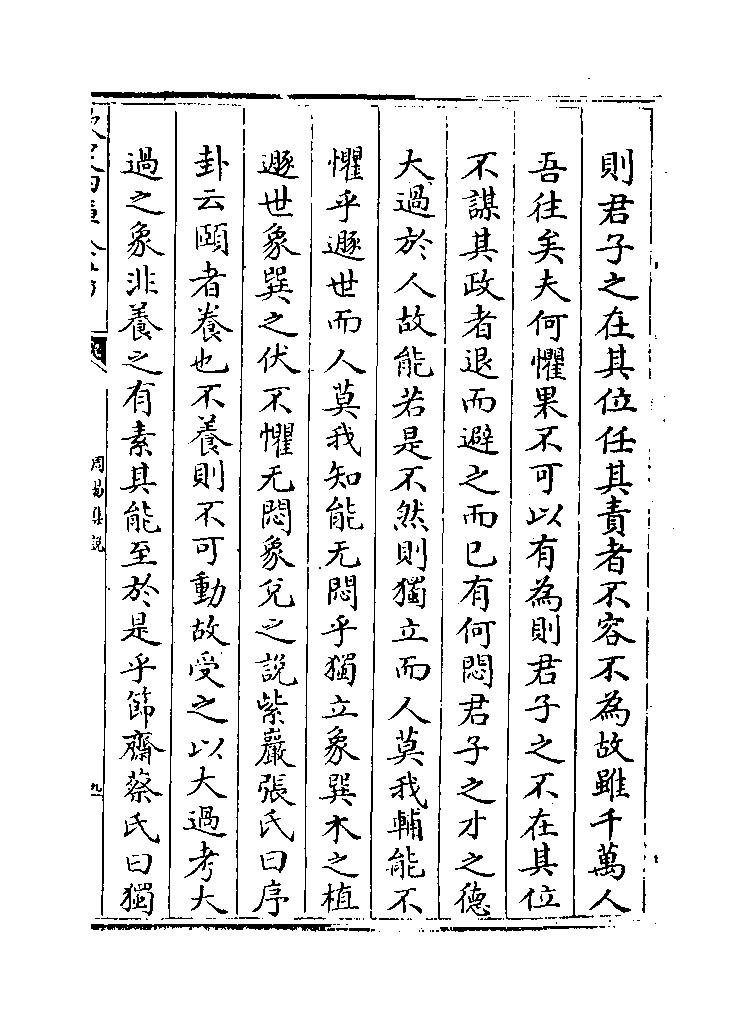 則君子之在其位任其責者不容不為故雖千萬人
吾往矣夫何懼果不可以有為則君子之不在其位
不謀其政者退而避之而已有何悶君子之才之德
大過於人故能若是不然則獨立而人莫我輔能不
懼乎遯世而人莫我知能无悶乎獨立象巽木之植
遯世象巽之伏不懼无悶象兌之說紫巖張氏曰序
卦云頤者養也不養則不可動故受之以大過考大
過之象非養之有素其能至於是乎節齋蔡氏曰獨
周易集說
九